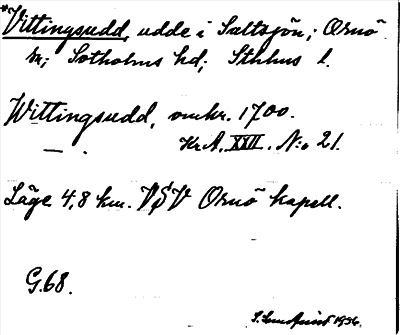 *Vittingsudd, udde i Saltsjön; Ornö
sn; Sotholms hd; Sthlms l.
Wittingsudd, omkr. 1700.
— . Kr.A. XXII. N:o 21.
Läge 4,8 km. VSV Ornö kapell.
G.68.
S. Lundquist 1936.